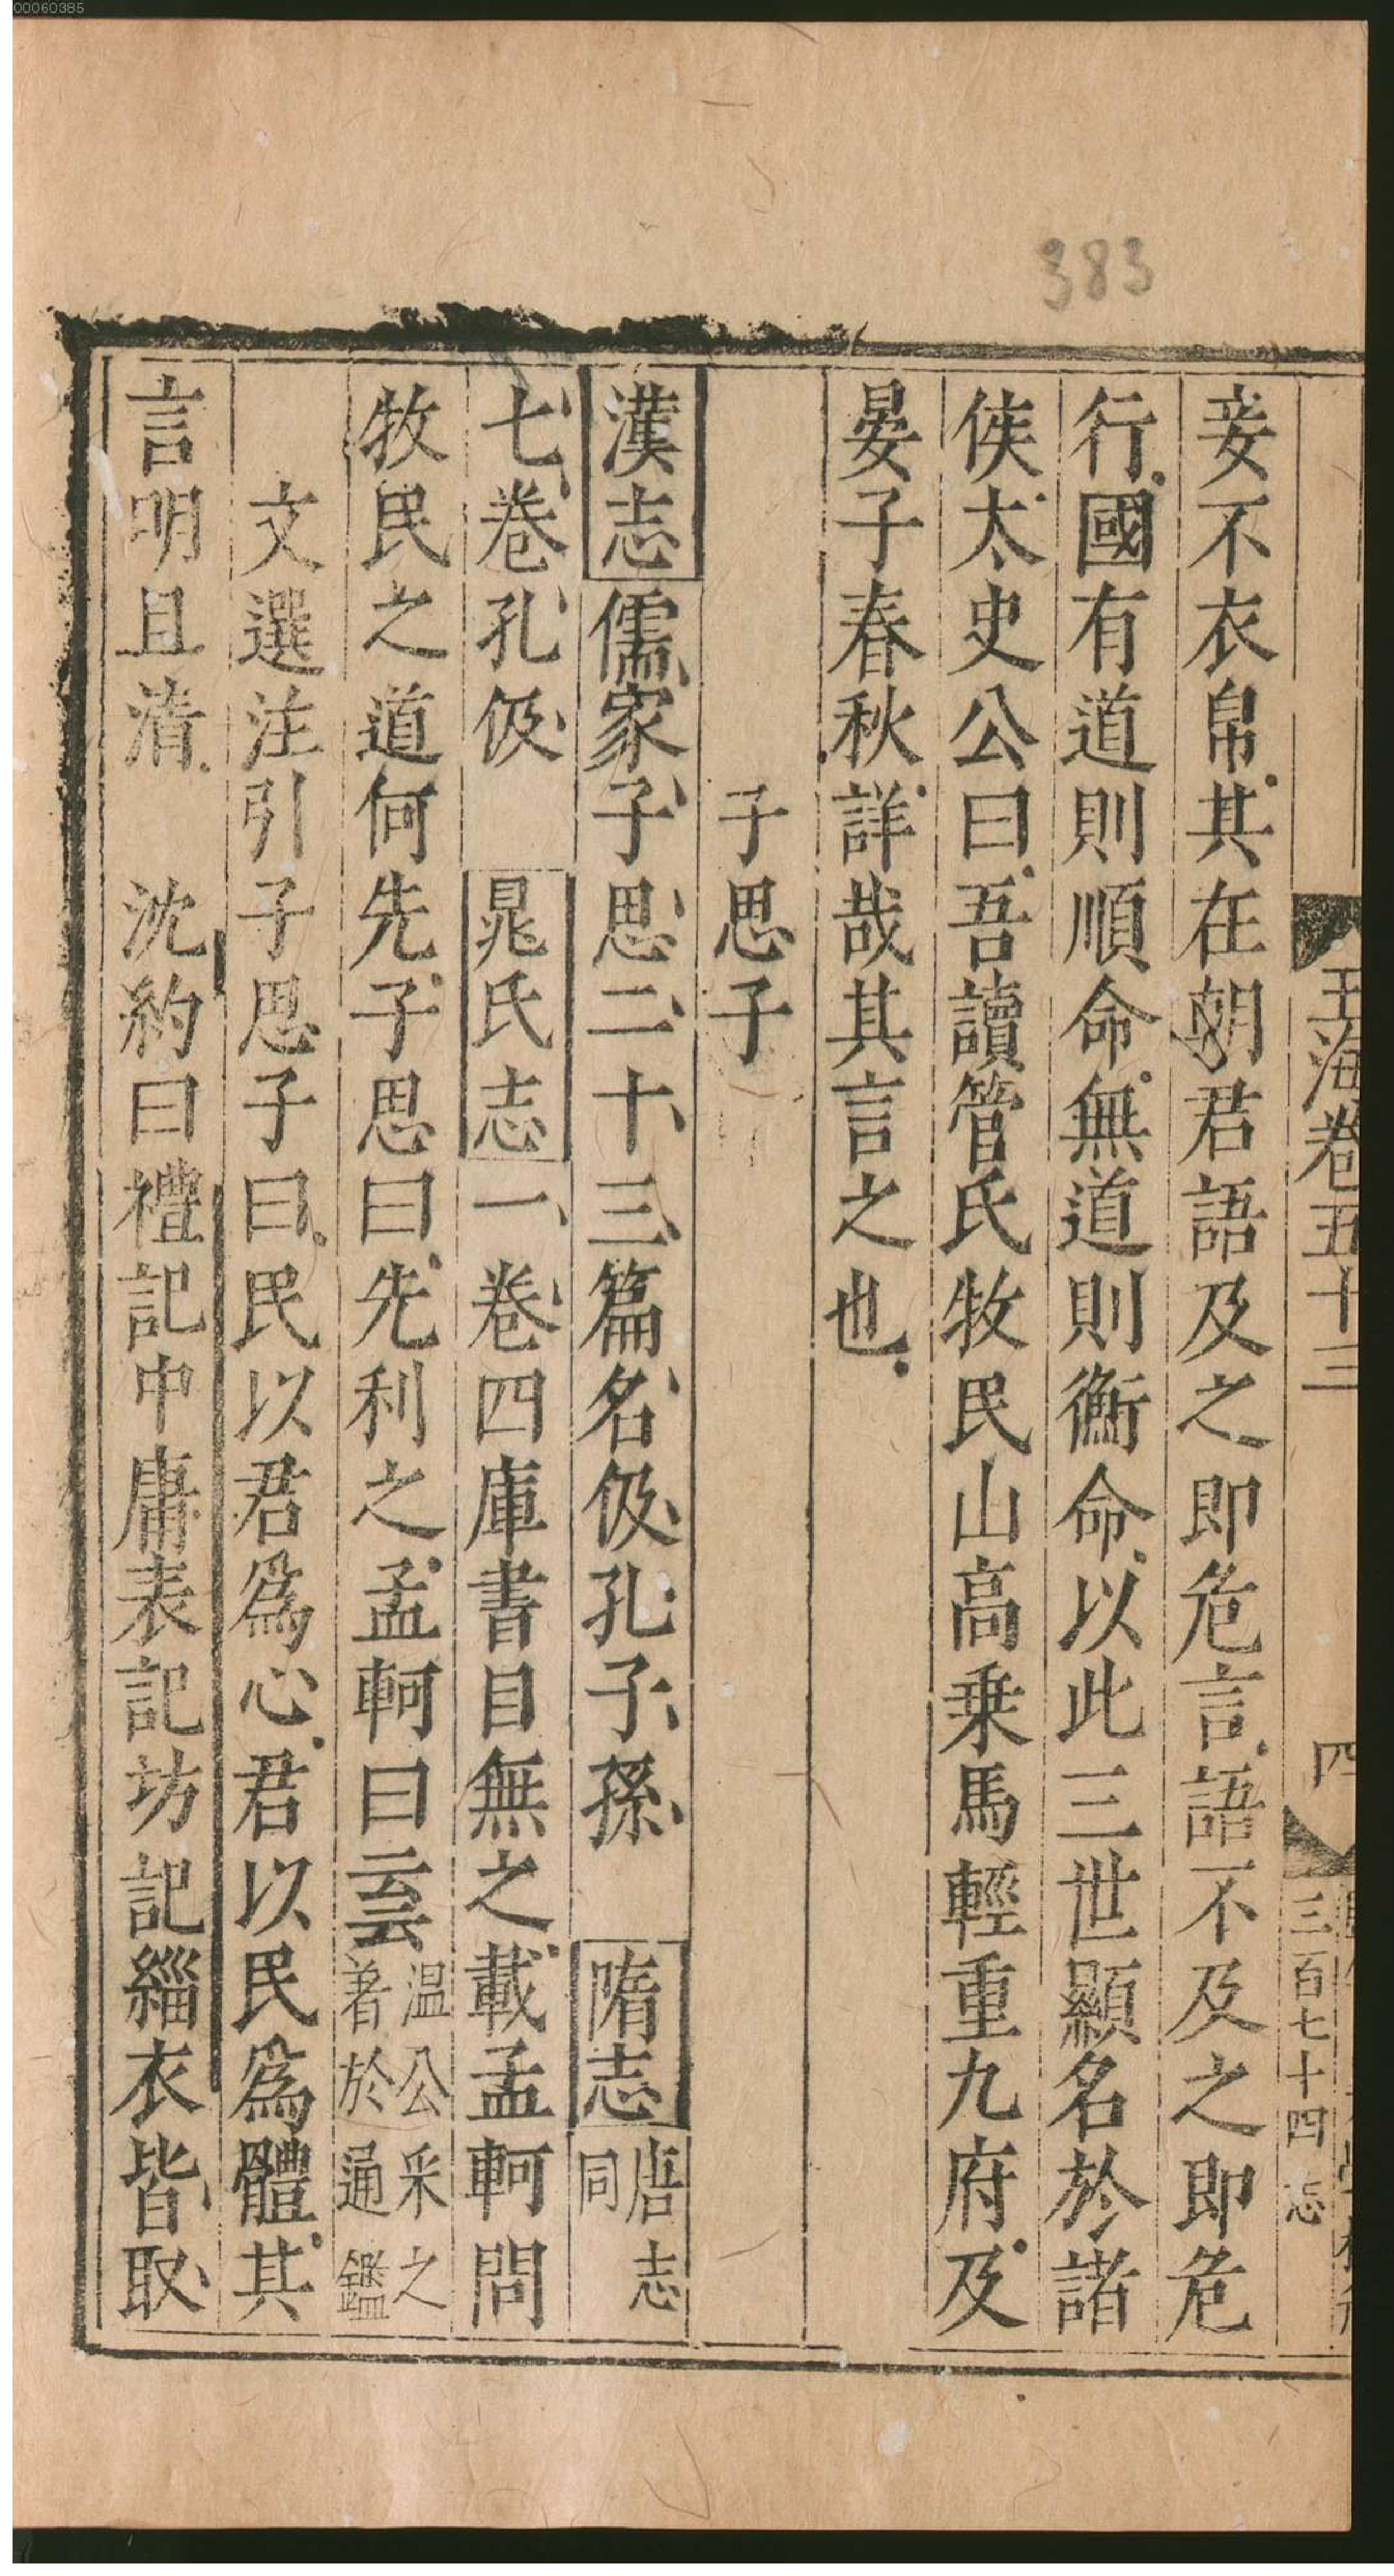 00060385
383
玉海卷五十三
四
三百七十四
妾不衣帛其在朝君語及之即危言語不及之即危
行國有道則順命無道則衡命以此三世顯名於諸
侯太史公曰吾讀管氏牧民山高乗馬輕重九府及
晏子春秋詳哉其言之也
子思子
漢志儒家子思二十三篇名伋孔子孫 隋志 唐志同
七卷孔伋 晁氏志一卷四庫書目無之載孟軻問
牧民之道何先子思曰先利之孟軻曰云云 温公采之著於通鑑
文選注引子思子曰民以君爲心君以民爲體其
言明且清 沈約曰禮記中庸表記坊記緇衣皆取